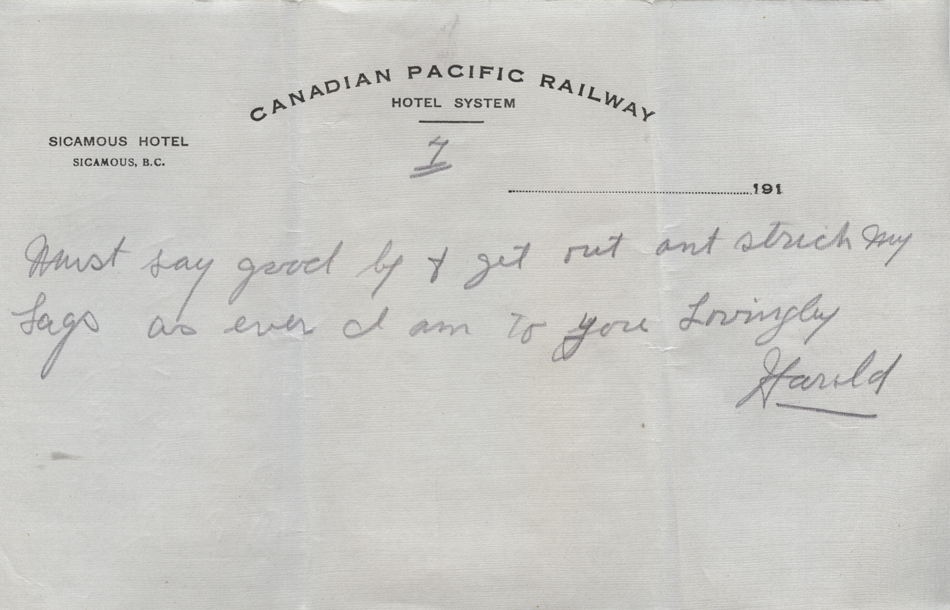 CANADIAN PACIFIC RAILWAY
HOTEL SYSTEM
SICAMOUS HOTEL
SICAMOUS, B.C.
7
191
Must say good by & get out ant strech my
Lags as ever I am to you Lovingley
Harold